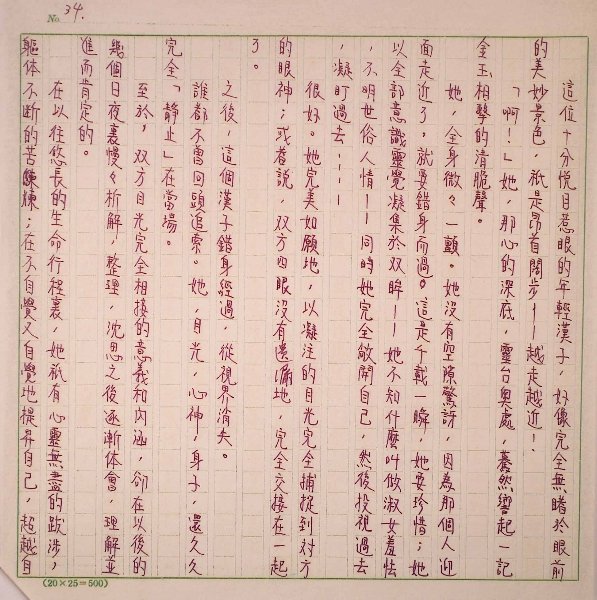 No. 34.
這位十分悅目惹眼的年輕漢子，好像完全無睹於眼前
的美妙景色，祇是昂首闊步——越走越近！
「啊！」她，那心的深底，靈台奧處，驀然響起一記
金玉相擊的清脆聲。
她，全身微々一顫。她沒有空隙驚訝，因為那個人迎
面走近了，就要錯身而過。這是千載一瞬，她要珍惜；她
以全部意識靈覺凝集於双眸——她不知什麼叫做淑女羞怯
，不明世俗人情——同時她完全敞開自己，然後投視過去
，凝盯過去……
很好。她完美如願地，以凝注的目光完全捕捉到対方
的眼神；或者說，双方四眼沒有遺漏地，完全交接在一起
了。
之後，這個漢子錯身經過，從視界消失。
誰都不會回頭追索。她，目光，心神，身子，還久久
完全「靜止」在當場。
至於，双方目光完全相接的意義和內涵，卻在以後的
幾個日夜裏慢々析解，整理，沈思之後逐漸体會，理解並
進而肯定的。
在以往悠長的生命行程裏，她祇有心靈無盡的跋涉，
軀体不断的苦煉；在不自覺又自覺地提昇自己，超越自
(20×25=500)